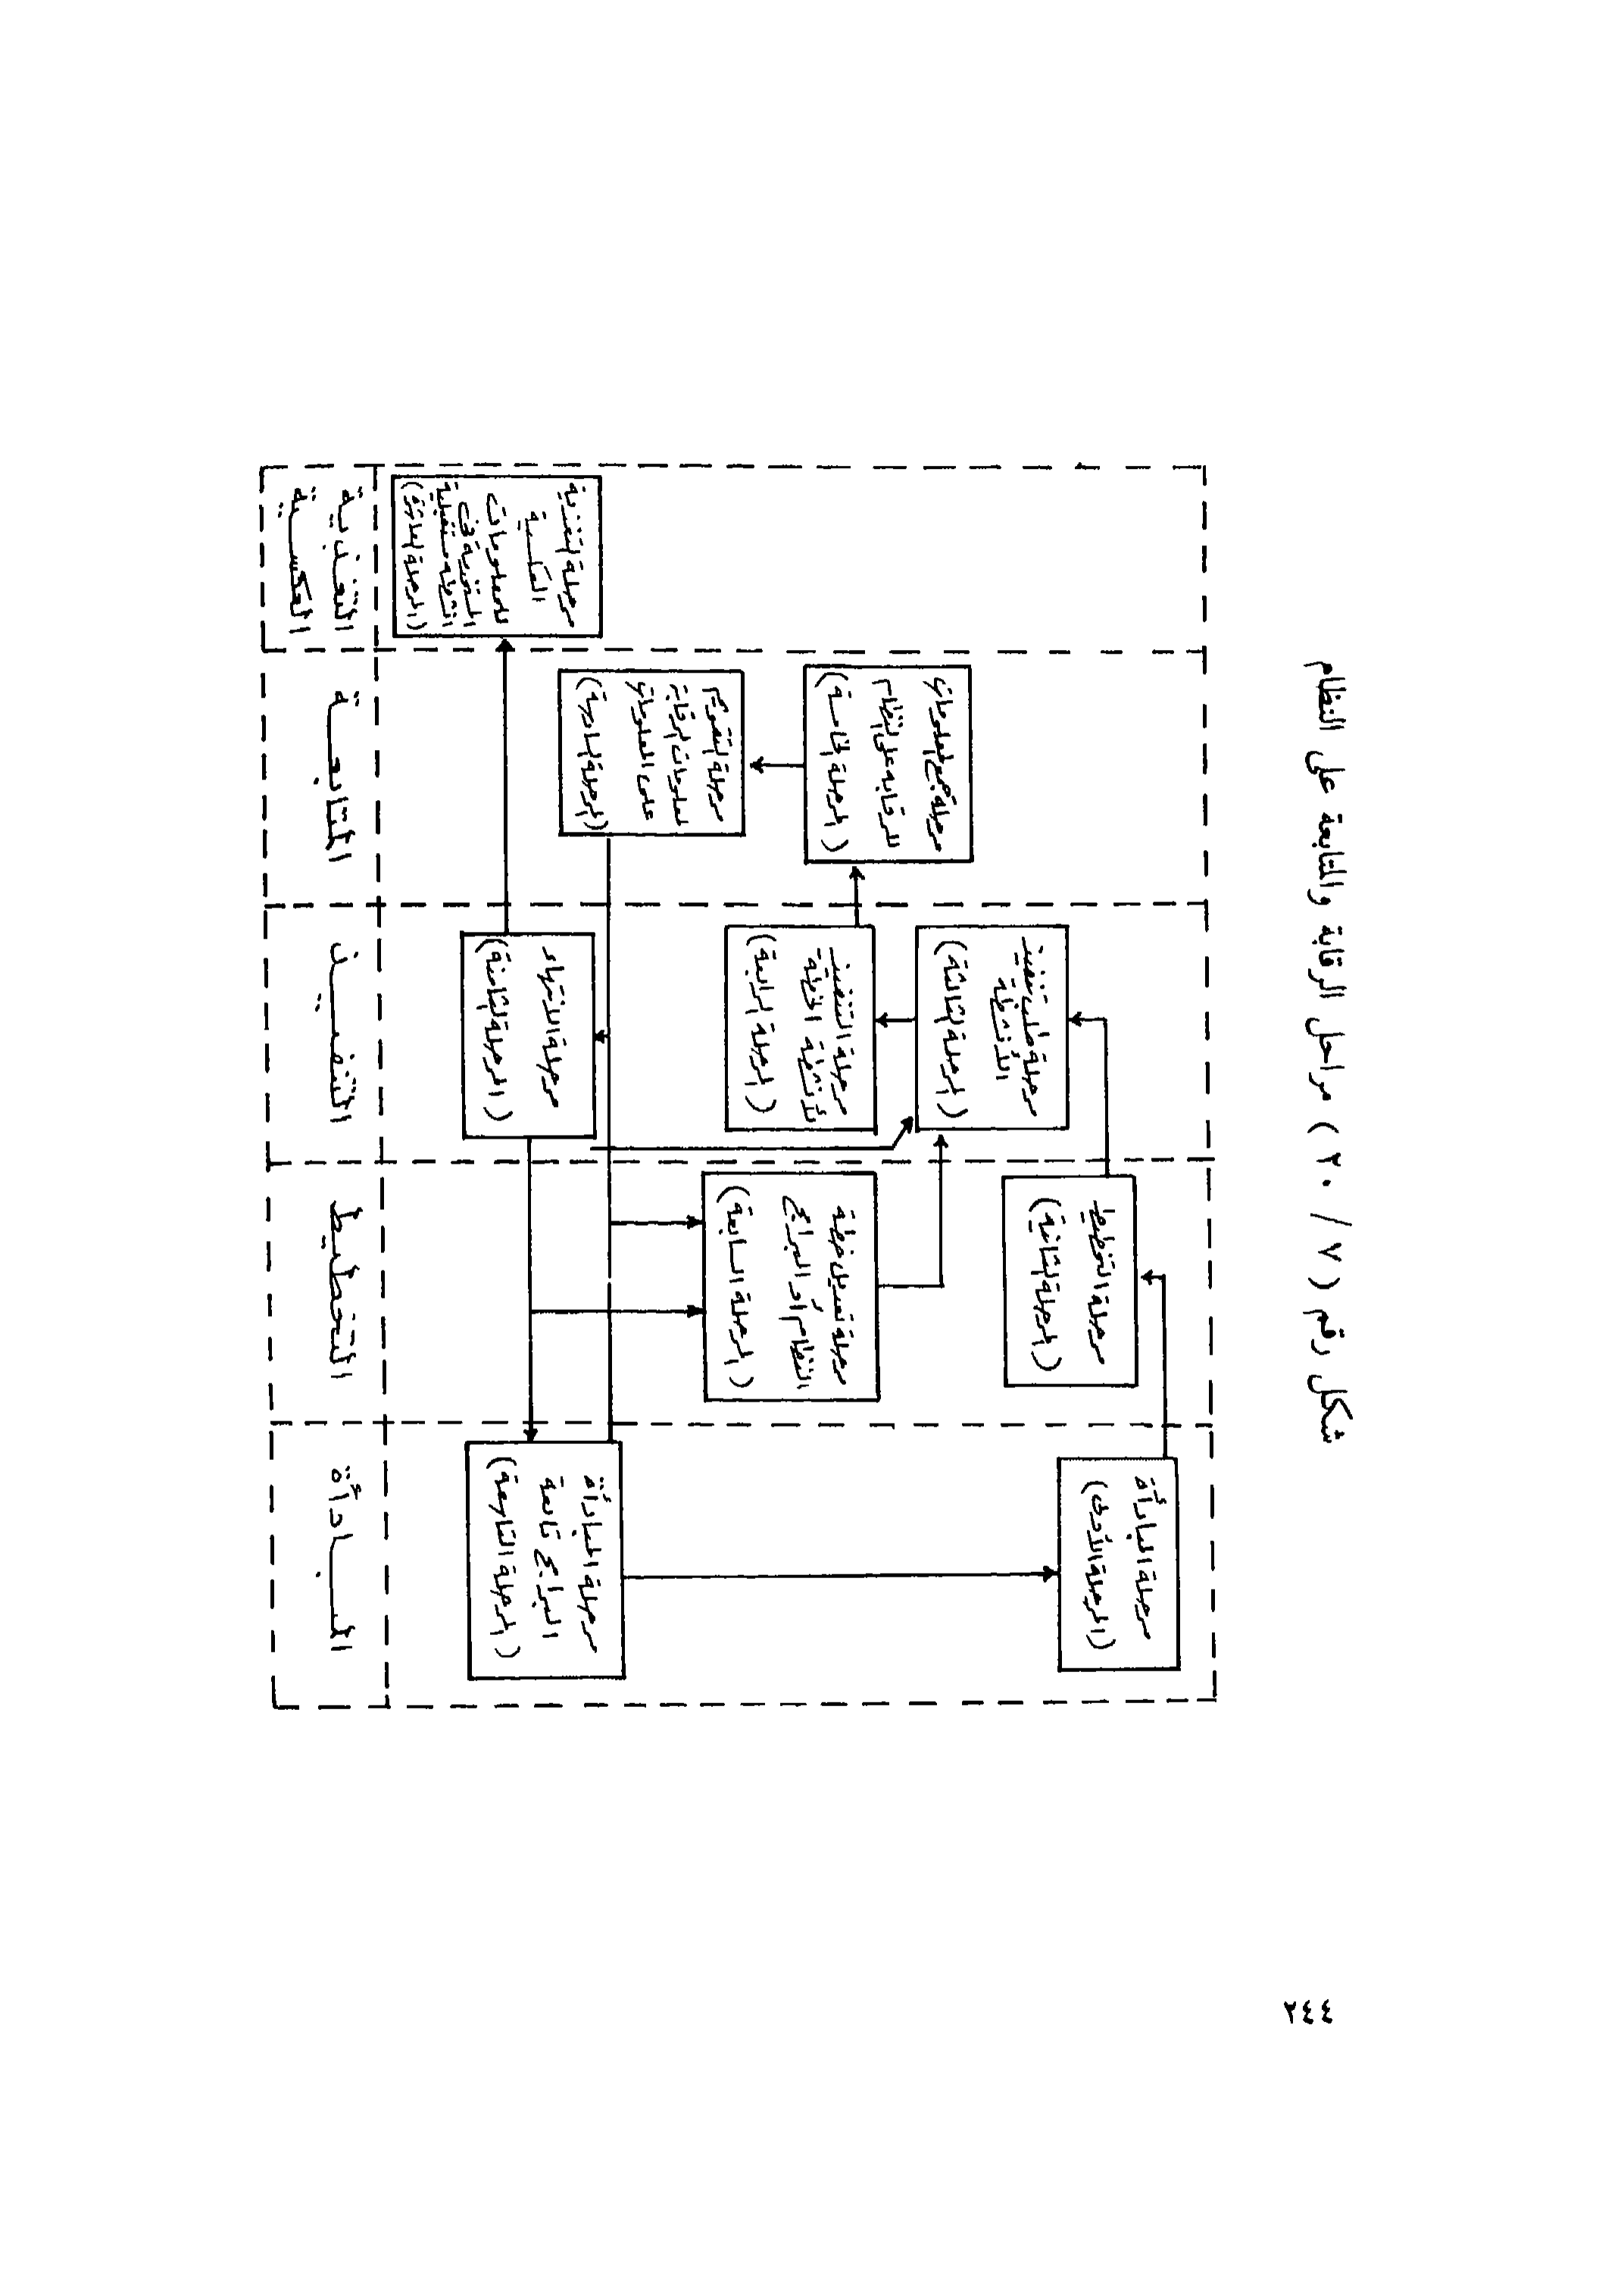 شكل رقم ( ٧ / ٢٠ ) مراحل الرقابة والمتابعة على النظام
مرحلة المبادأة
(المرحلة الأولى)
مرحلة التخطيط
(المرحلة الثانية)
مرحلة طلب تنفيذ
الأنشطة
(المرحلة الثالثة)
مرحلة التنفيذ
للأنشطة
(المرحلة الرابعة)
مرحلة جمع المعلومات
للرقابة على النظام
(المرحلة الخامسة)
مرحلة التقويم
لمعلومات الرقابة
على المعلومات
(المرحلة السادسة)
مرحلة تعديل خطة
النظام أو البرامج
(المرحلة السابعة)
مرحلة الانتهاء
(المرحلة الثامنة)
مرحلة المبادأة
البرامج تابعة
(المرحلة التاسعة)
مرحلة التغذية
العكسية
للمعلومات
(المرحلة العاشرة)
المبادأة
التخطيط
التنفيذ
المتابعة
التغذية
العكسية
٢٤٤